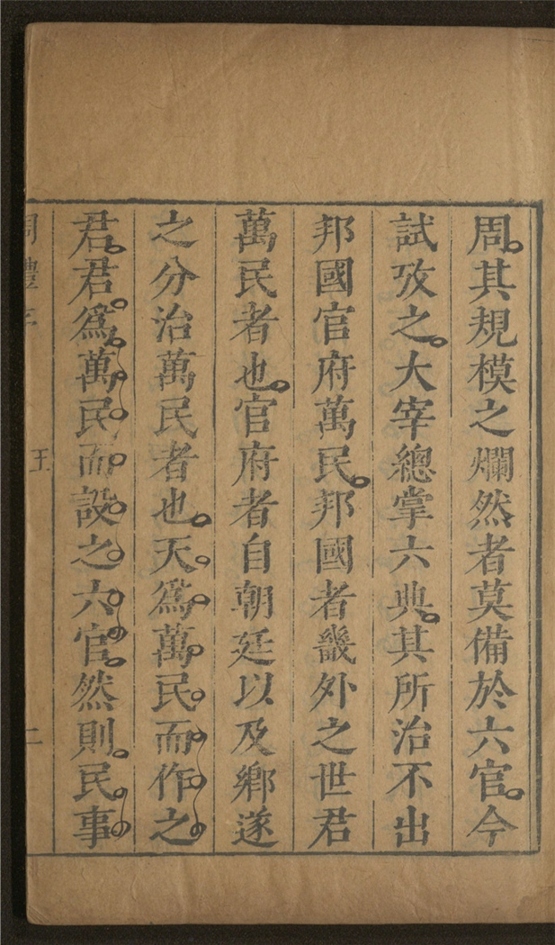 周其規模之爛然者莫備於六官今
試攷之大宰總掌六典其所治不出
邦國官府萬民邦國者畿外之世君
萬民者也官府者自朝廷以及鄉遂
之分治萬民者也天為萬民而作之
君君為萬民而設之六官然則民事
周禮
二